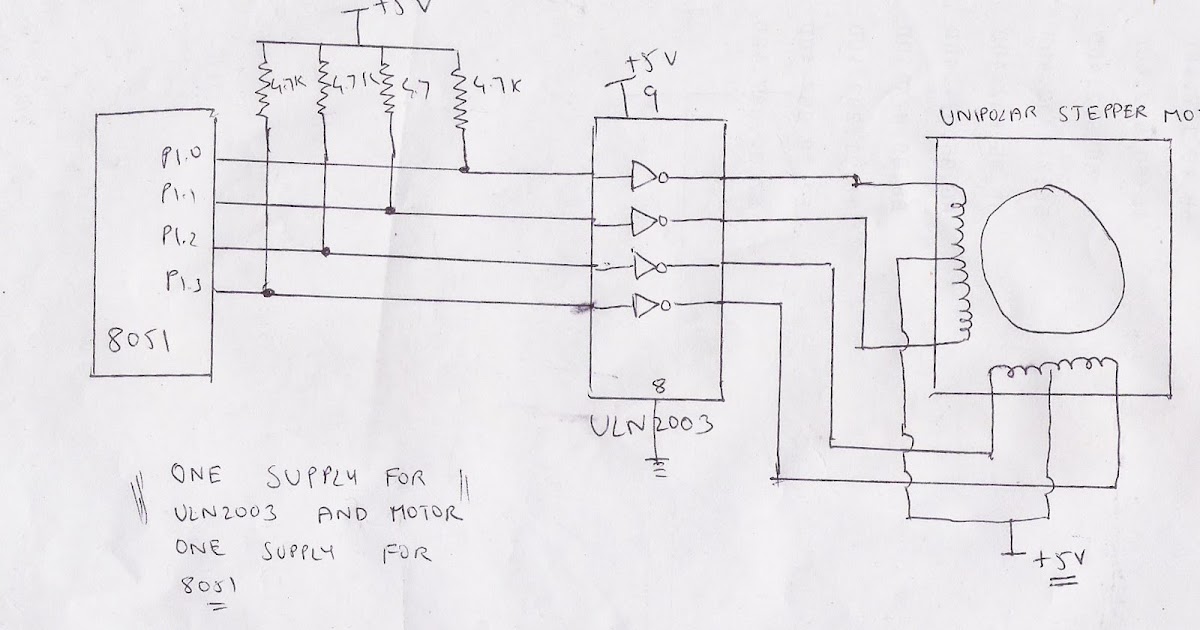 +5V
4.7K 4.7K 4.7 4.7K
+5V
9
UNIPOLAR STEPPER MO
P1.0
P1.1
P1.2
P1.3
8051
8
ULN2003
ONE SUPPLY FOR
ULN2003 AND MOTOR
ONE SUPPLY FOR
8051
+5V